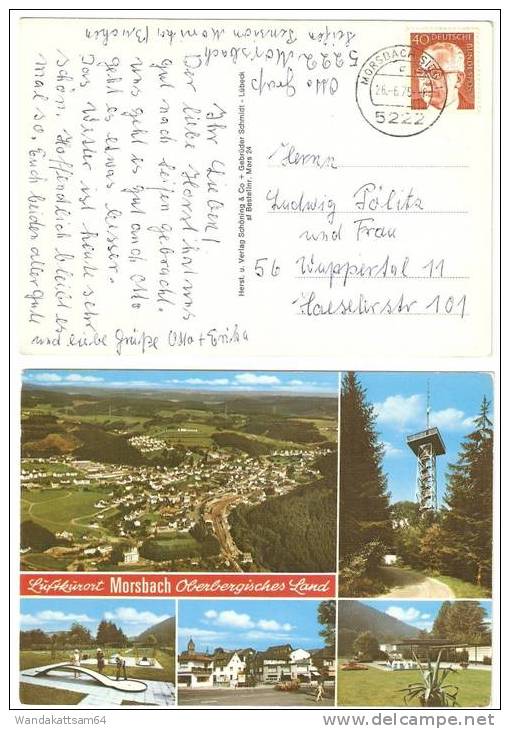 Otto Graß
5222 Morsbach
Seifen Pension Monika
Ihr Lieben!
Der liebe Horst hat uns
gut nach Seifen gebracht.
uns geht es gut und Otto
geht es etwas besser.
Das Wetter ist heute sehr
schön. Hoffentlich bleibt es
mal so. Euch beiden alles gute
und liebe Grüße Otto + Erika
Herst. u. Verlag Schöning & Co + Gebrüder Schmidt - Lübeck
Bestellnr. Mors 24
MORSBACH, SIEG
26.-6.75
5222
40 DEUTSCHE BUNDESPOST
Herrn
Ludwig Pölitz
und Frau
56 Wuppertal 11
Haeselerstr 101
Luftkurort Morsbach Oberbergisches Land
Wandakattsam64